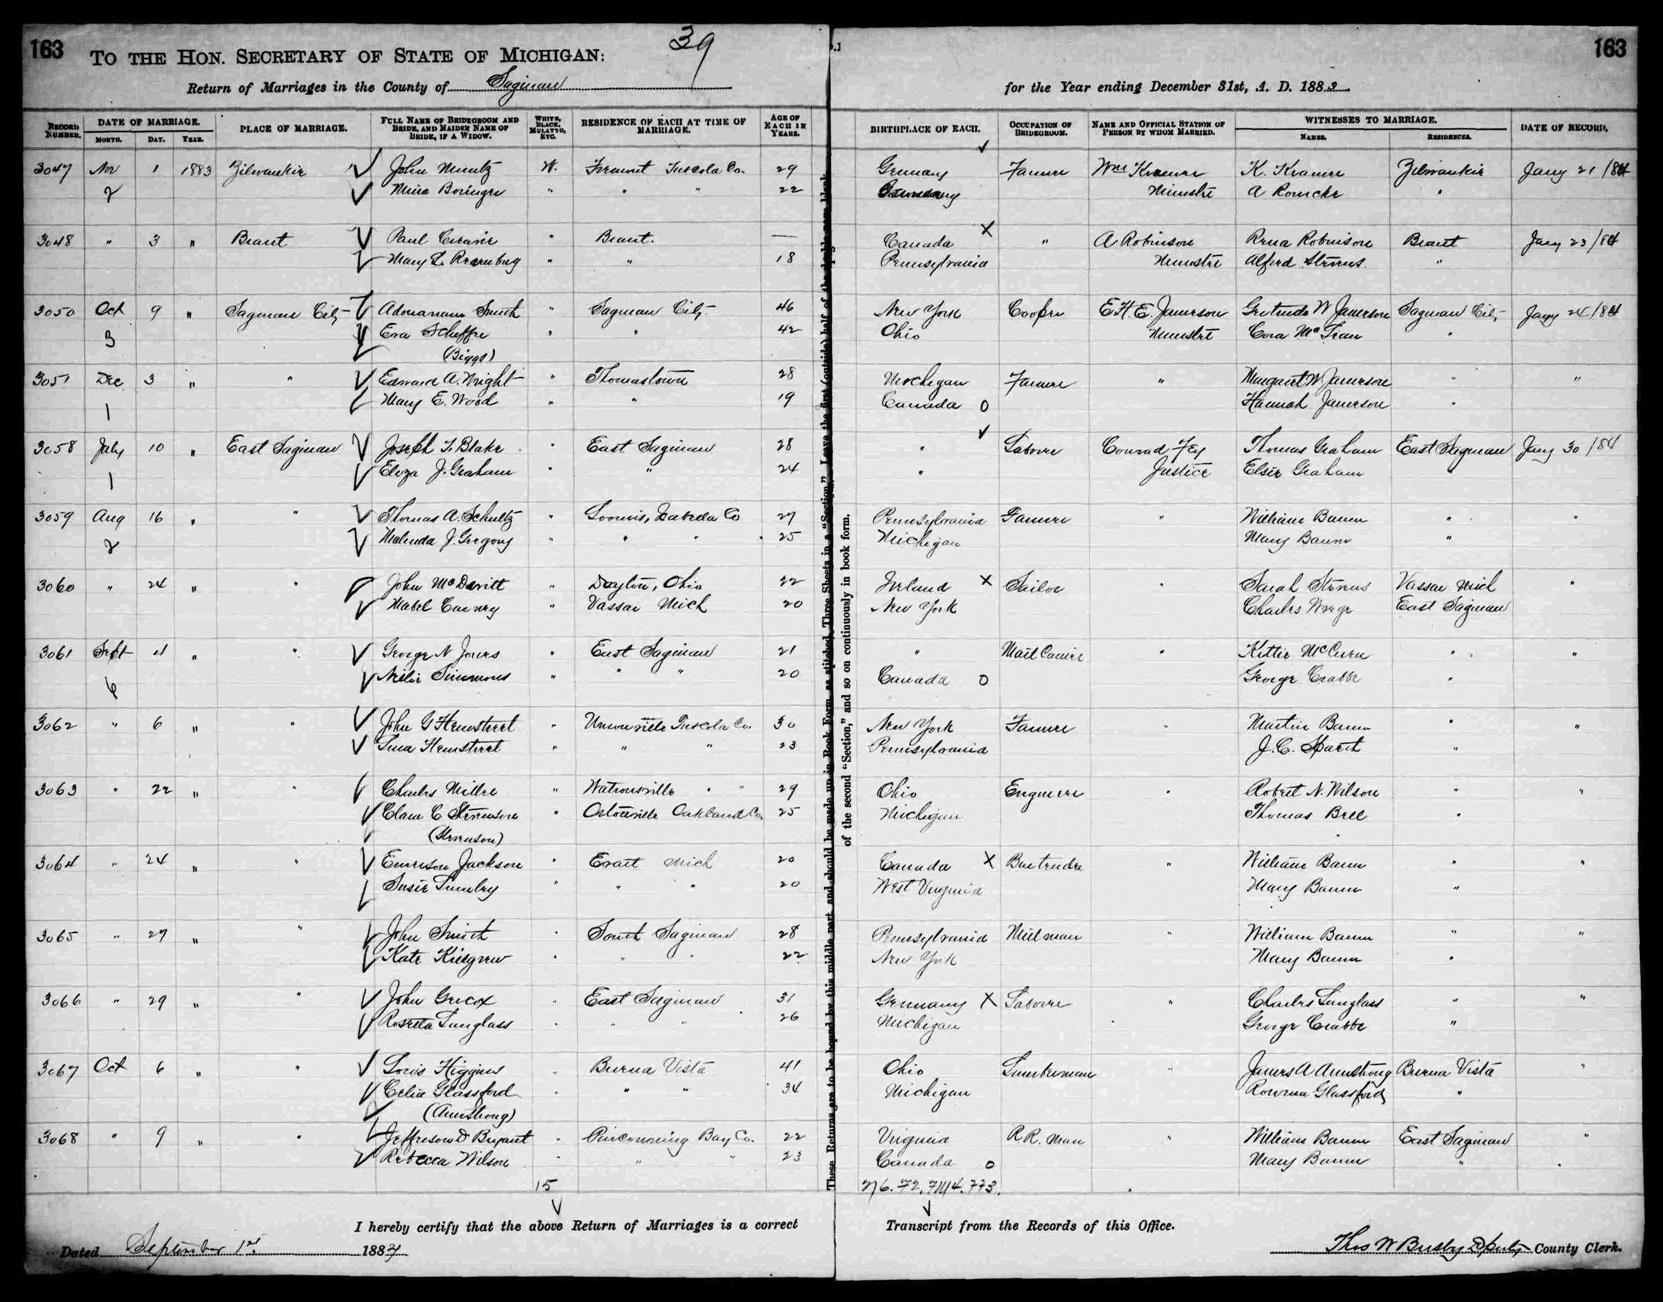 163
163
39
TO THE HON. SECRETARY OF STATE OF MICHIGAN:
Return of Marriages in the County of Saginaw for the Year ending December 31st, A. D. 1883
RECORD NUMBER. DATE OF MARRIAGE. MONTH. DAY. YEAR. PLACE OF MARRIAGE. FULL NAME OF BRIDEGROOM AND BRIDE, AND MAIDEN NAME OF BRIDE, IF A WIDOW. WHITE, BLACK, MULATTO, ETC. RESIDENCE OF EACH AT TIME OF MARRIAGE. AGE OF EACH IN YEARS. BIRTHPLACE OF EACH. OCCUPATION OF BRIDEGROOM. NAME AND OFFICIAL STATION OF PERSON BY WHOM MARRIED. WITNESSES TO MARRIAGE. NAMES. RESIDENCES. DATE OF RECORD.
3047 Nov 1 1883 Zilwaukie John Muntz W. Fremont Tuscola Co. 29 Germany Farmer Wm Kramer K. Kramer Zilwaukie Jany 21/84
2 Mina " " " 22 Germany Minister A "
3048 " 3 " Brant Paul " Brant. — Canada X " A Robinson Rena Robinson Brant Jany 23/84
Mary L " " 18 Pennsylvania Minister Alfred Stevens "
3050 Oct 9 " Saginaw City Adoniram Smith " Saginaw City 46 New York Cooper E. H. E. Jameson Gertrude W Jameson Saginaw City Jany 24/84
3 Eva Scheffer " " 42 Ohio Minister Cora "
(Biggs)
3051 Dec 3 " " Edward A. Wright " Thomastown 28 Michigan Farmer " Margaret W Jameson " "
1 Mary E. Wood " " 19 Canada O Hannah Jameson "
3058 July 10 " East Saginaw Joseph T. Blake " East Saginaw 28 " Laborer Conrad Fey Thomas Graham East Saginaw Jany 30/84
1 Eliza J. Graham " " 24 " Justice Elsie Graham
3059 Aug 16 " " Thomas A. Schultz " Loomis, Isabella Co 27 Pennsylvania Farmer " William Baum " "
2 Malinda J. Gregory " " " 25 Michigan Mary Baum "
3060 " 24 " " John McDevitt " Dayton, Ohio 22 Ireland X Sailor " Sarah Stevens Vassar Mich "
Mabel " Vassar Mich 20 New York Charles East Saginaw
3061 Sept 11 " " George N Jones " East Saginaw 21 " Mail Carrier " Kittie McCurn " "
6 Nellie Simmons " " " 20 Canada O George Crabbe "
3062 " 6 " " John G Hemstreet " Unionville Tuscola Co. 30 New York Farmer " Martin Baum " "
Tena Hemstreet " " " 23 Pennsylvania J. C. Sparth "
3063 " 22 " " Charles Miller " Watrousville " " 29 Ohio Engineer " Robert N. Wilson " "
Clara C Stevenson " Ortonville Oakland Co. 25 Michigan Thomas Bell "
(Stevenson)
3064 " 24 " " Emerson Jackson " Evart Mich 20 Canada X Bartender " William Baum " "
Susie " " " 20 West Virginia Mary Baum "
3065 " 27 " " John Smith " South Saginaw 28 Pennsylvania Millman " William Baum " "
Kate Kilgrew " " 22 New York Mary Baum "
3066 " 29 " " John Gricox " East Saginaw 31 Germany X Laborer " Charles Lunglass " "
Rosetta Lunglass " " " 26 Michigan George Crabbe "
3067 Oct 6 " " Louis Higgins " Buena Vista 41 Ohio Lumberman " James A Armstrong Buena Vista "
Celia Glassford " " " 34 Michigan Rowena Glassford "
(Armstrong)
3068 " 9 " " Jefferson D Bryant " Pinconning Bay Co. 22 Virginia R R. Man " William Baum East Saginaw "
Rebecca Wilson " " " 23 Canada O Mary Baum "
15
These Returns are to be bound by this middle part, and should be made up in Book Form, as stitched, Three Sheets in a "Section," Leave the first (outside) half of the
of the second "Section," and so on continuously in book form.
I hereby certify that the above Return of Marriages is a correct Transcript from the Records of this Office.
Dated September 1st 1884 Thos W Busby Deputy County Clerk.